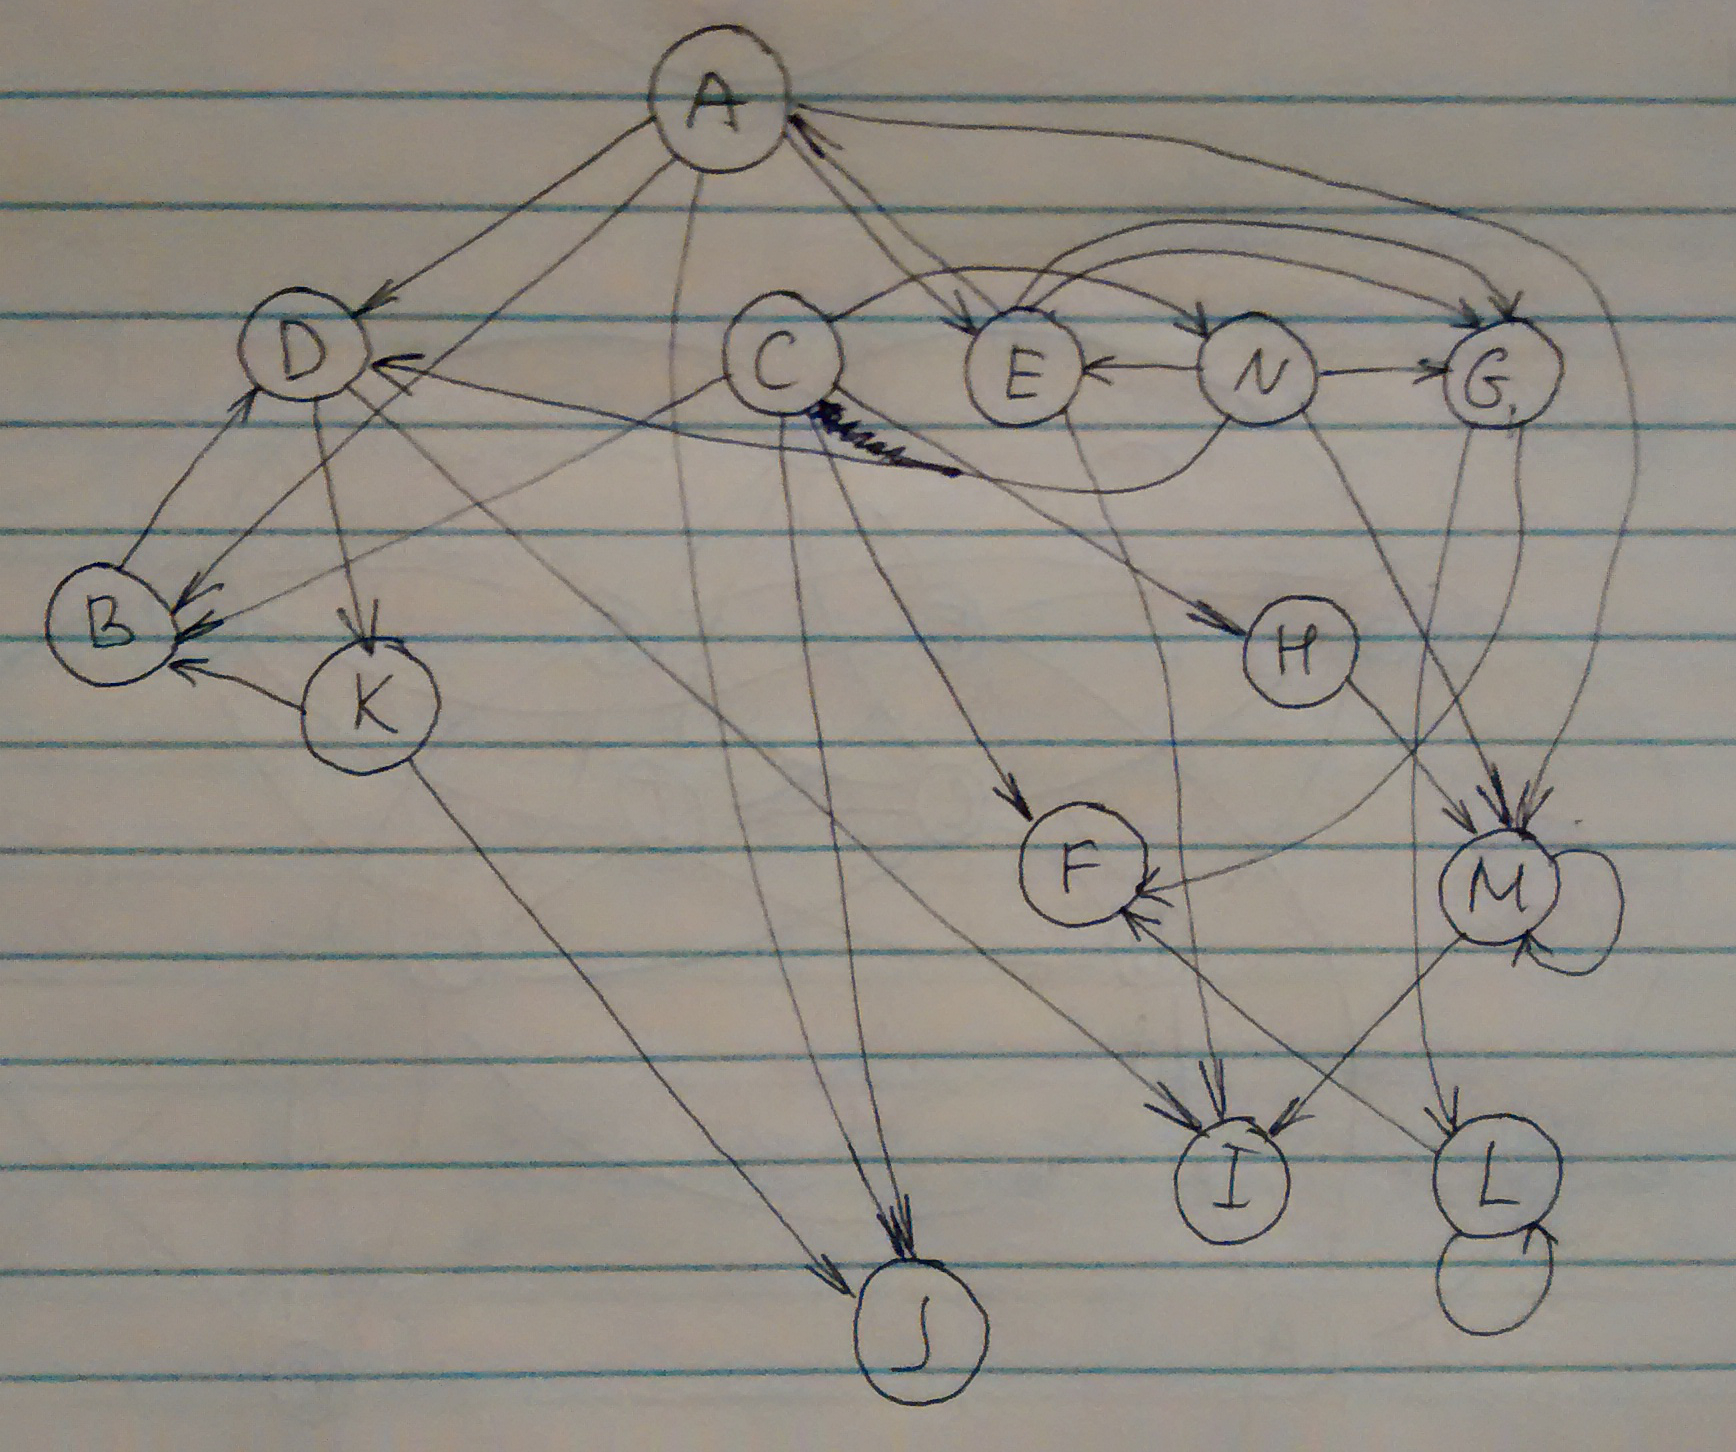 A
D C E N G
B H
K
F M
I L
J